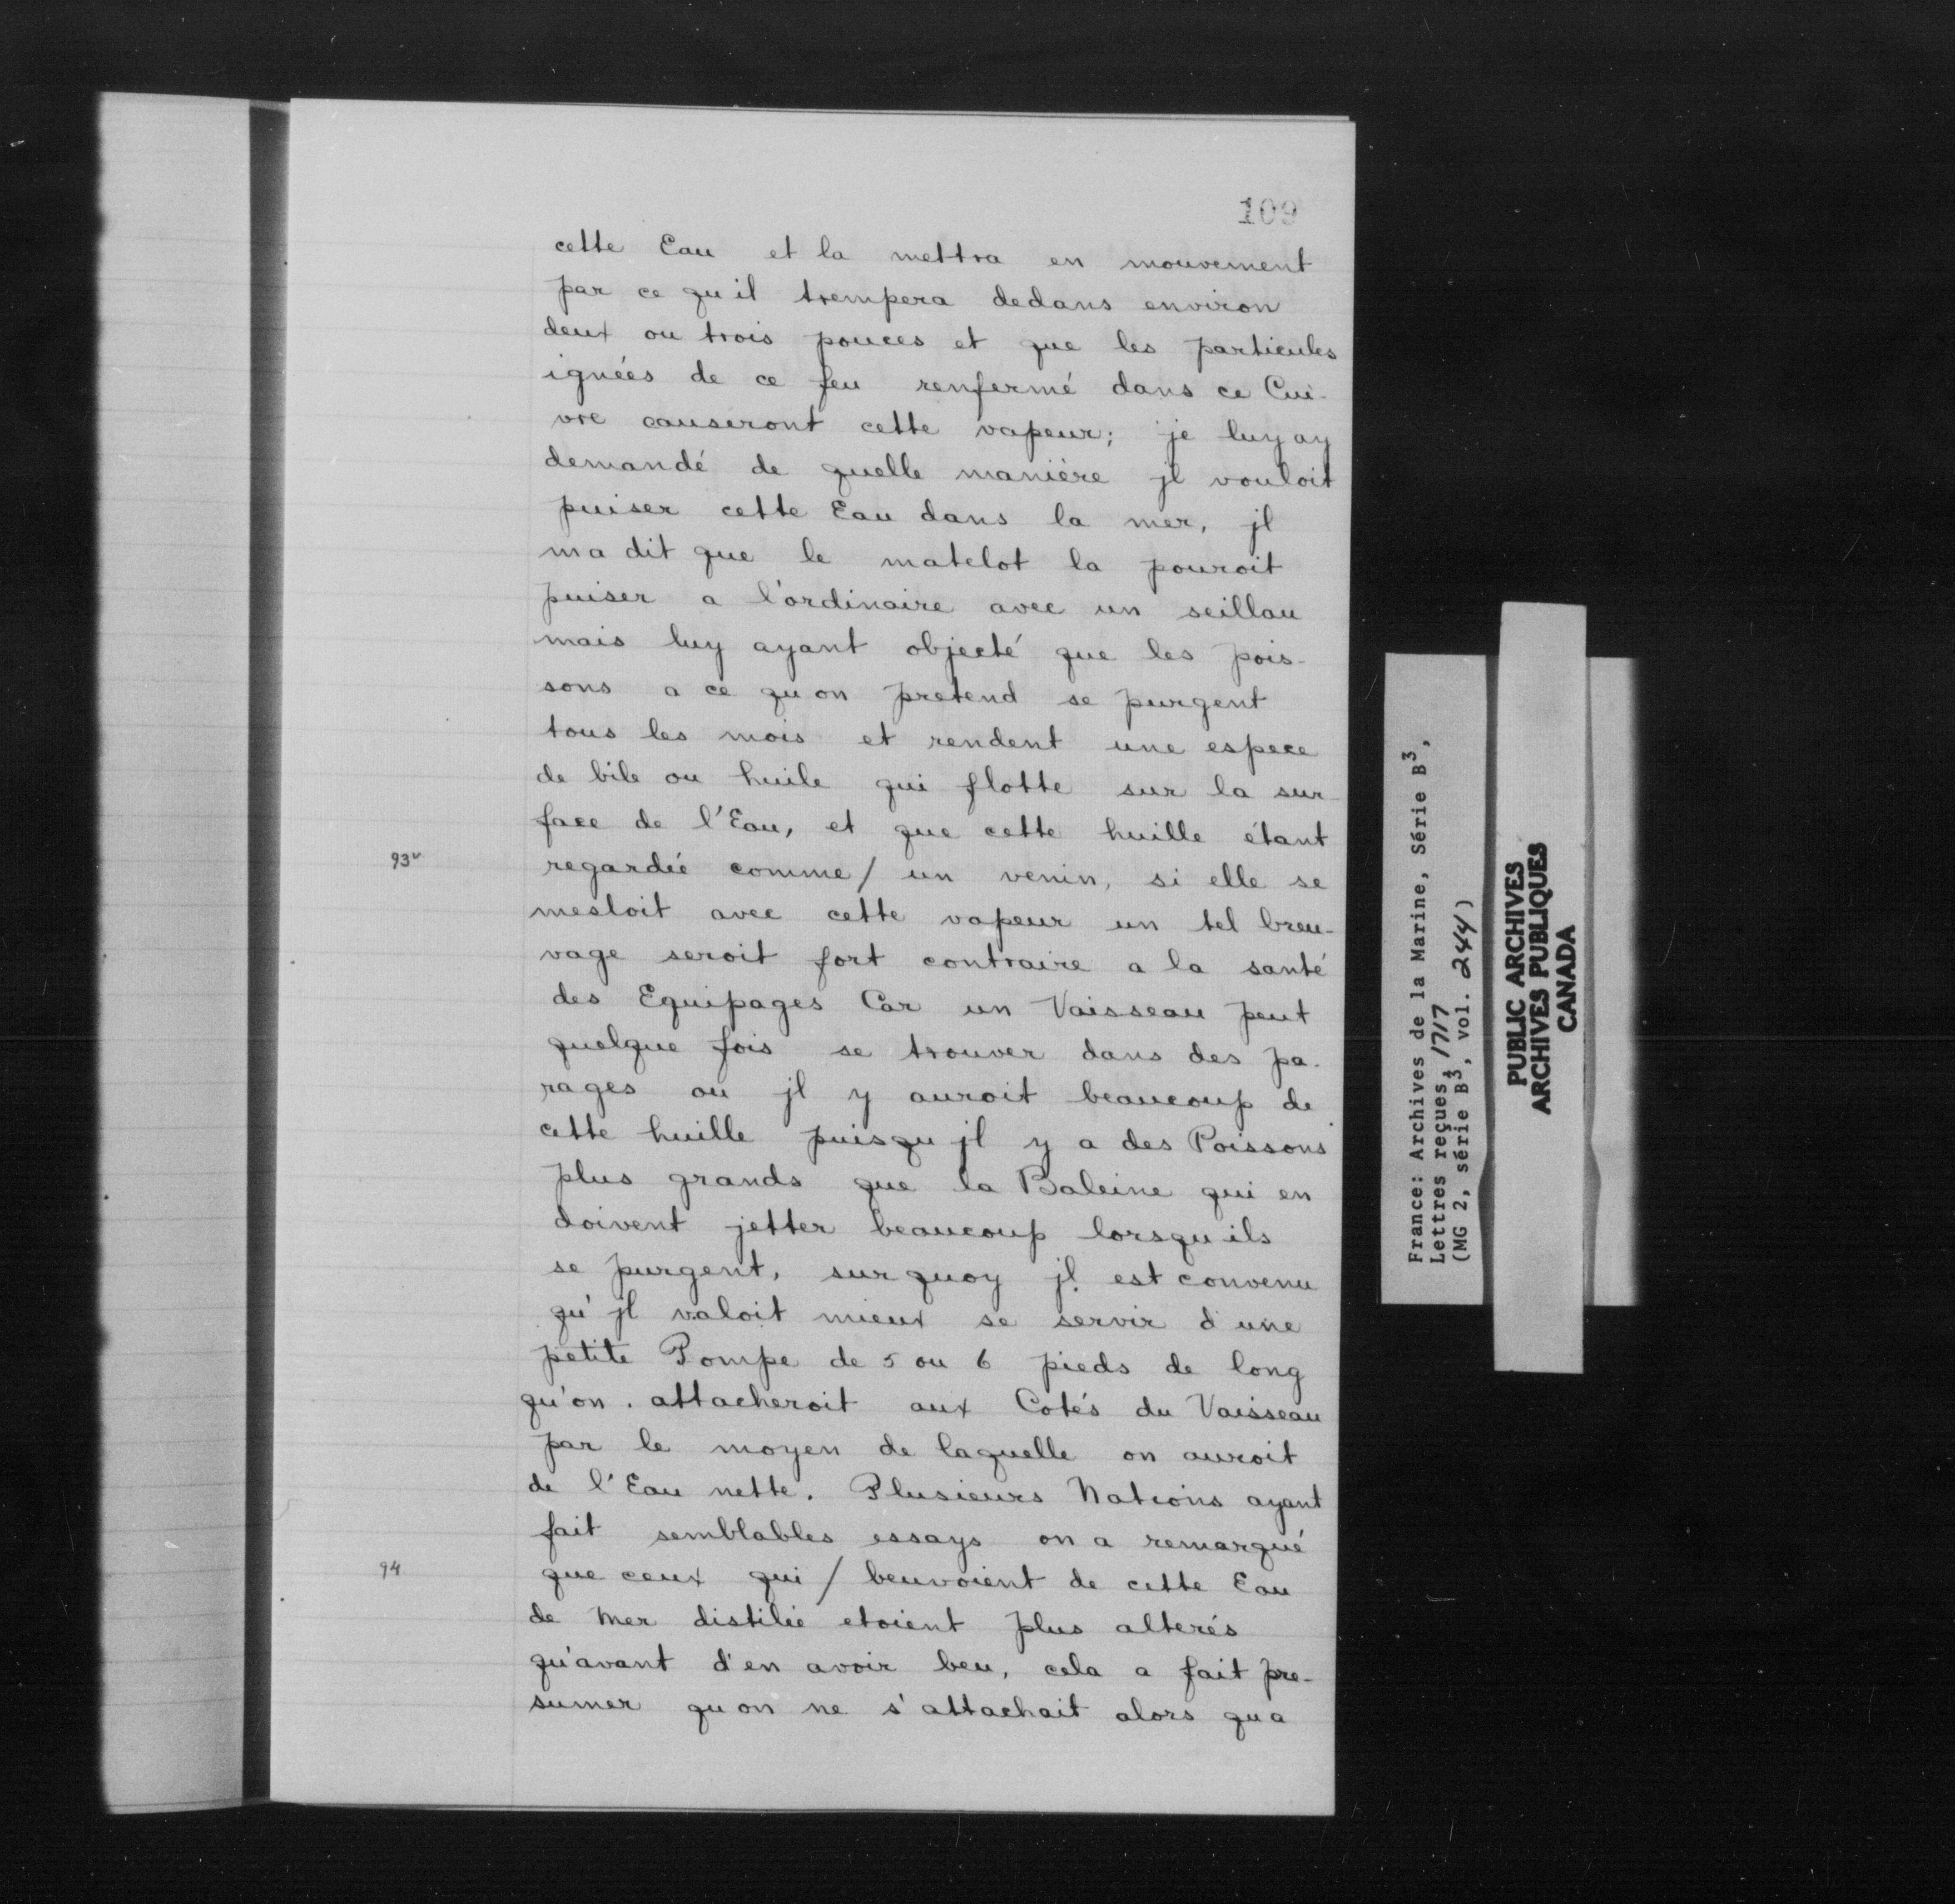 109
cette Eau et la mettra en mouvement
par ce qu'il trempera dedans environ
deux ou trois pouces et que les particules
ignées de ce feu renfermé dans ce Cui-
vre causeront cette vapeur; je luy ay
demandé de quelle maniére jl vouloit
puiser cette Eau dans la mer, jl
ma dit que le matelot la pouroit
puiser a l'ordinaire avec un seillau
mais luy ayant objecté que les pois-
sons a ce qu on pretend se purgent
tous les mois et rendent une espece
de bile ou huile qui flotte sur la sur-
face de l'Eau, et que cette huille étant
93v regardée comme / un venin, si elle se
mesloit avec cette vapeur un tel breu-
vage seroit fort contraire a la santé
des Equipages Car un Vaisseau peut
quelque fois se trouver dans des pa-
rages ou jl y auroit beaucoup de
cette huille puisqu jl y a des Poissons
plus grands que la Baleine qui en
doivent jetter beaucoup lorsqu ils
se purgent, sur quoy jl est convenu
qu' jl valoit mieux se servir d une
petite Pompe de 5 ou 6 pieds de long
qu'on attacheroit aux Cotés du Vaisseau
par le moyen de laquelle on auroit
de l'Eau nette. Plusieurs Nations ayant
fait semblables essays on a remarqué
94 que ceux qui / beuvoient de cette Eau
de Mer distilée etoient plus alterés
qu'avant d'en avoir beu, cela a fait pre-
sumer qu on ne s'attachait alors qu a
France: Archives de la Marine, Série B3,
Lettres reçues, 1717
(MG 2, série B3, vol. 244)
PUBLIC ARCHIVES
ARCHIVES PUBLIQUES
CANADA